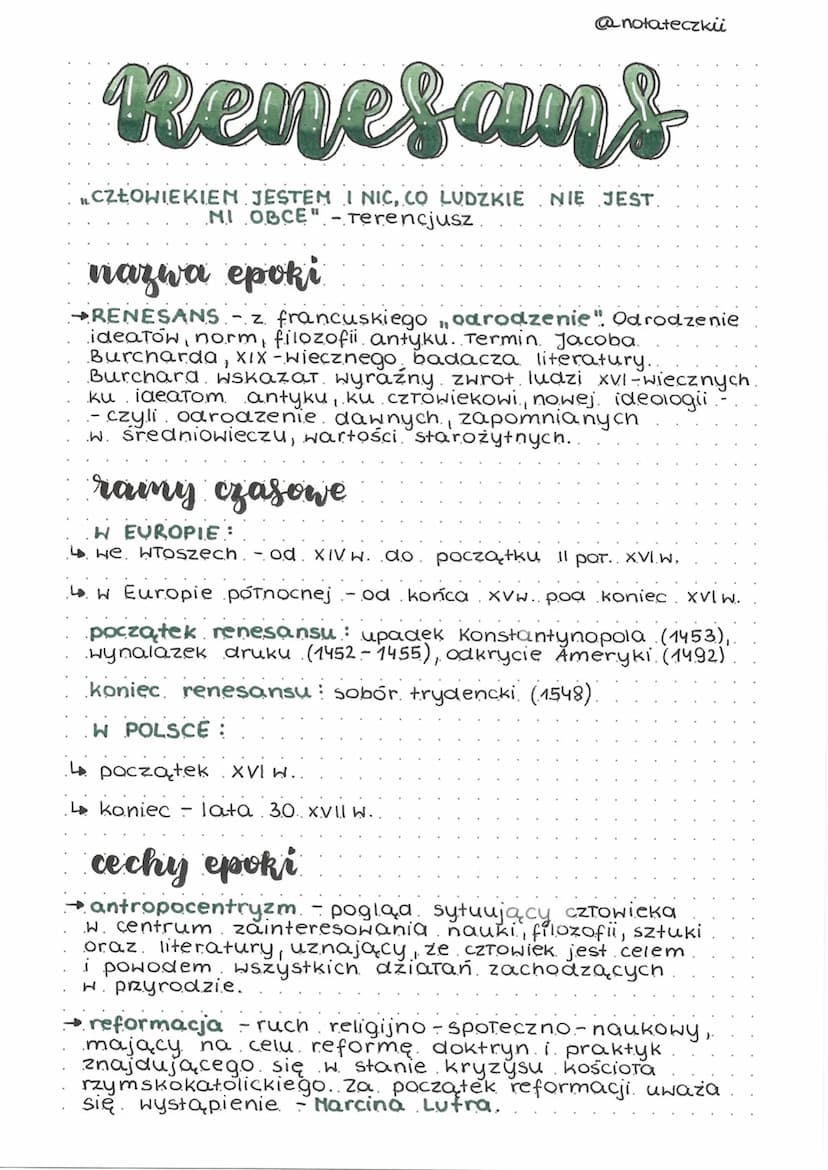 @notateczkii
Renesans
„CZŁOWIEKIEM JESTEM I NIC, CO LUDZKIE NIE JEST
MI OBCE" - Terencjusz
nazwa epoki
→ RENESANS - z francuskiego „odrodzenie". Odrodzenie
ideałów, norm, filozofii antyku. Termin Jacoba
Burcharda, XIX-wiecznego badacza literatury.
Burchard wskazał wyraźny zwrot ludzi XVI-wiecznych
ku ideałom antyku, ku człowiekowi, nowej ideologii -
- czyli odrodzenie dawnych, zapomnianych
w średniowieczu, wartości starożytnych.
ramy czasowe
W EUROPIE:
↳ we Włoszech - od XIV w. do początku II poł. XVI w.
↳ w Europie północnej - od końca XV w. pod koniec XVI w.
początek renesansu: upadek Konstantynopola (1453),
wynalazek druku (1452 - 1455), odkrycie Ameryki (1492)
koniec renesansu: sobór trydencki (1548)
W POLSCE:
↳ początek XVI w.
↳ koniec - lata 30. XVII w.
cechy epoki
→ antropocentryzm - pogląd sytuujący człowieka
w centrum zainteresowania nauki, filozofii, sztuki
oraz literatury, uznający, że człowiek jest celem
i powodem wszystkich działań zachodzących
w przyrodzie.
→ reformacja - ruch religijno-społeczno-naukowy,
mający na celu reformę doktryn i praktyk
znajdującego się w stanie kryzysu kościoła
rzymskokatolickiego. Za początek reformacji uważa
się wystąpienie - Marcina Lutra.